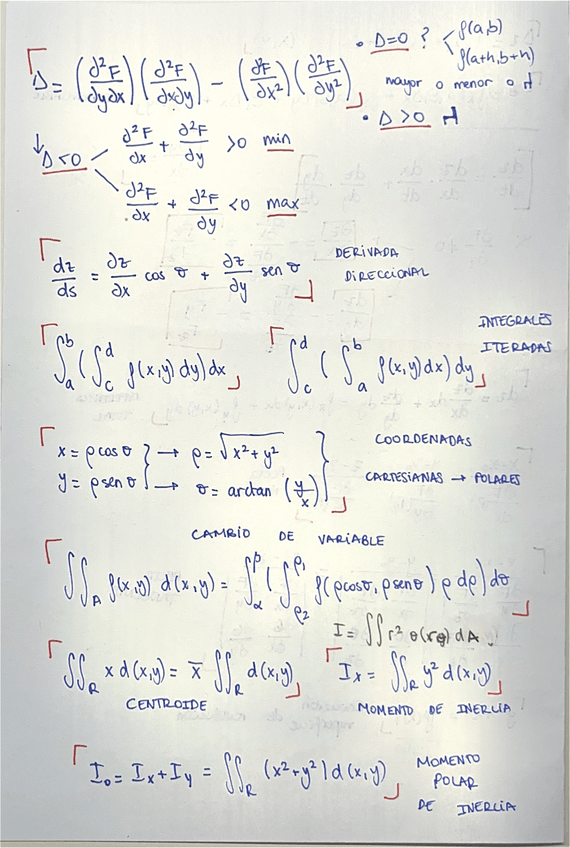 Δ = (∂²F/∂y∂x) (∂²F/∂x∂y) − (∂²F/∂x²) (∂²F/∂y²)
• Δ=0 ? < f(a,b)
f(a+h,b+h)
mayor o menor o
• Δ>0
↓
Δ<0
∂²F/∂x + ∂²F/∂y >0 min
∂²F/∂x + ∂²F/∂y <0 max
dz/ds = ∂z/∂x cos σ + ∂z/∂y sen σ
DERIVADA
DIRECCIONAL
∫_a^b (∫_c^d f(x,y) dy) dx
∫_c^d (∫_a^b f(x,y) dx) dy
INTEGRALES
ITERADAS
x = ρ cos σ } → ρ = √(x²+y²)
y = ρ sen σ } → σ = arctan (y/x)
COORDENADAS
CARTESIANAS → POLARES
CAMBIO DE VARIABLE
∫∫_A f(x,y) d(x,y) = ∫_α^β (∫_ρ2^ρ1 f(ρcosσ, ρsenσ) ρ dρ) dσ
I = ∫∫ r² σ(r,θ) dA
∫∫_R x d(x,y) = x̄ ∫∫_R d(x,y)
CENTROIDE
I_x = ∫∫_R y² d(x,y)
MOMENTO DE INERCIA
I_o = I_x + I_y = ∫∫_R (x²+y²) d(x,y)
MOMENTO
POLAR
DE INERCIA